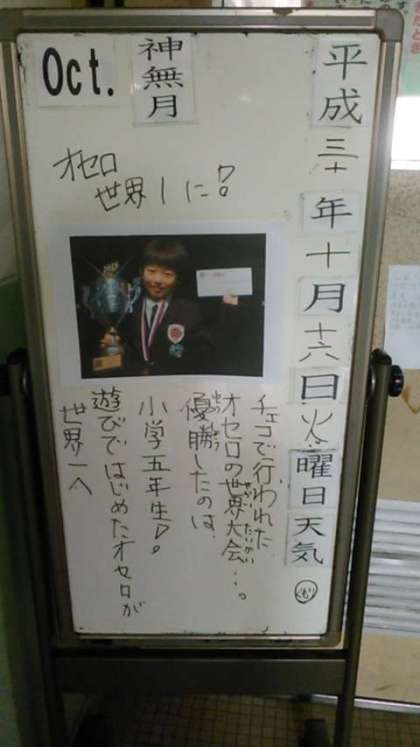 平成三十年十月十六日火曜日天気くもり
神無月
Oct.
オセロ
世界1に!!
チェコで行われた
オセロの世界大会…。
優勝したのは、
小学五年生!!
遊びではじめたオセロが
世界一へ